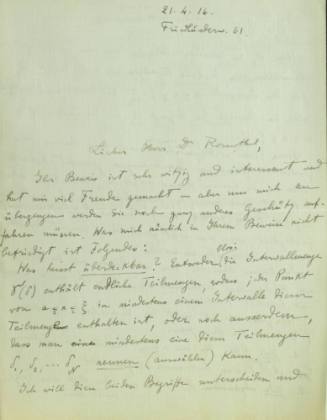 21. 4. 16.
Friedländerw. 61
Lieber Herr Dr Rosenthal,
Ihr Beweis ist sehr witzig und interessant und
hat mir viel Freude gemacht — aber um mich zu
überzeugen werden Sie noch ganz anderes Geschütz auf-
fahren müssen. Was mich nämlich in Ihrem Beweise nicht
befriedigt ist Folgendes:
Was heisst überdeckbar? Entweder: die Intervallmenge
enthält endliche Teilmengen, sodass jeder Punkt
von a ≤ x ≤ ξ in mindestens einem Intervalle dieser
Teilmenge enthalten ist, oder noch ausserdem,
dass man mindestens eine dieser Teilmengen
δ₁, δ₂, ... δ_N nennen (auswählen) kann.
Ich will diese beiden Begriffe unterscheiden und